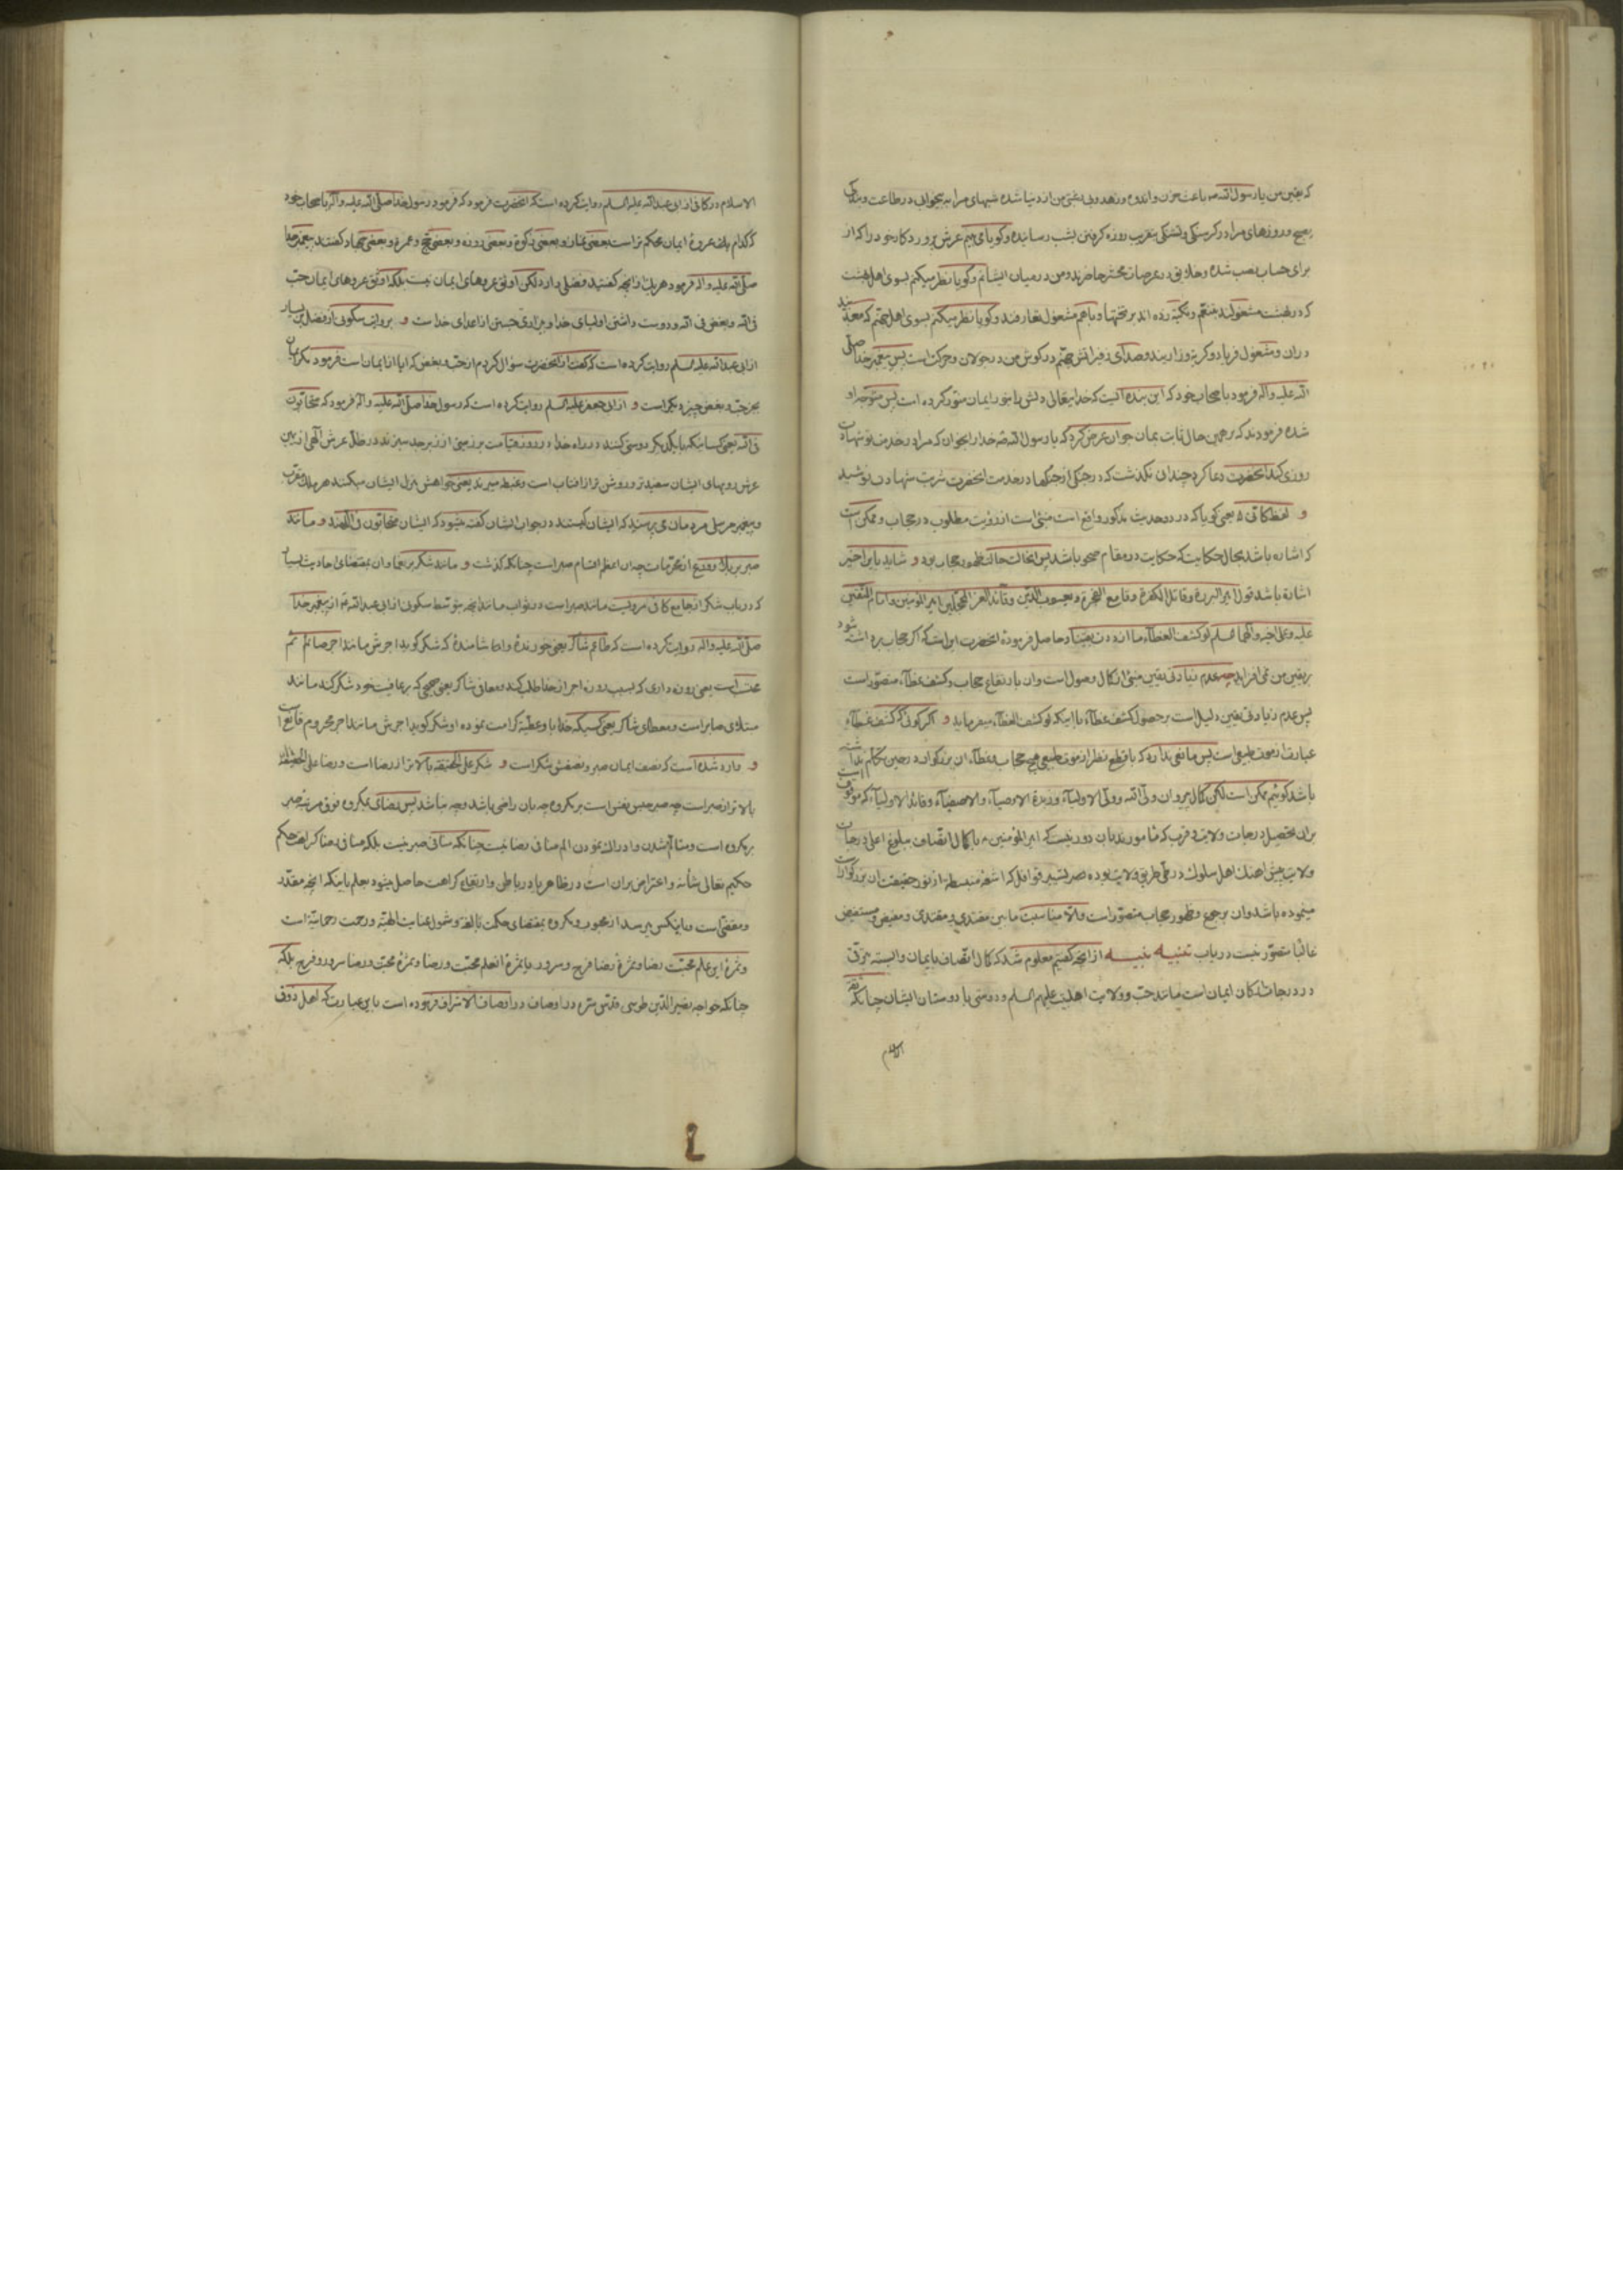 که یقین من یا رسول الله صه باعث حزن و اندوه و زهد و بی رغبتی من از دنیا شده شبهای مرا به بیخوابی در طاعت و بندگی
بصبح و روزهای مرا در گرسنگی و تشنگی بتقریب روزه گرفتن بشب رسانیده و گویا می بینم عرش پروردگار خود را که از
برای حساب نصب شده و خلایق در عرصات محشر حاضرند و من در میان ایشانم و گویا نظر میکنم بسوی اهل بهشت
که در بهشت مشغولند بتنعم و تکیه زده اند بر تختها و با هم مشغول تعارفند و گویا نظر میکنم بسوی اهل جهنم که معذبند
دران و مشغول فریاد و گریه و زاریند و صدای زفیر آتش جهنم در گوش من در جولان و حرکت است پس پیغمبر خدا صلی
الله علیه و آله فرمود باصحاب خود که این بنده ایست که خدایتعالی دلش را بنور ایمان منور کرده است پس متوجه او
شده فرمودند که بر همین حال ثابت بمان جوان عرض کرد که یا رسول الله صه خدا را بخوان که مرا در خدمت تو شهادت
روزی کند آنحضرت دعا کرد چندان نگذشت که در جنگی از جنگها در خدمت آنحضرت شربت شهادت نوشید
و لفظ کانی یعنی گویا که در دو حدیث مذکور واقع است مبنی است از رؤیت مطلوب در حجاب و ممکن است
که اشاره باشد بحال حکایت که حکایت در مقام صحو باشد پس آنحالت حالت ظهور حجاب بود و شاید باین اخیر
اشارة باشد قول امیر البررة و قاتل الکفرة و قامع الفجرة و یعسوب الدین و قائد الغر المحجلین امیر المؤمنین و امام المتقین
علیه و علی اخیه و آلهما السلام لو کشف الغطاء ما ازددت یقینا و حاصل فرموده آنحضرت این است که اگر حجاب برداشته شود
بر یقین من نمی افزاید چه عدم زیادتی یقین مبنی از کمال وصول است و آن با ارتفاع حجاب و کشف غطاء متصور است
پس عدم زیادتی یقین دلیل است بر حصول کشف غطاء با اینکه لو کشف الغطاء میفرماید و اگر گوئی که کشف غطاء
عبارت از موت طبیعی است پس مانعی ندارد که با قطع نظر از موت طبیعی هیچ حجاب و غطاء آن بزرگوار در حین تکلم نداشته
باشد گوئیم ممکن است لکن کمال پیروان ولی الله و ولی الاولیاء و زبدة الاوصیاء و الاصفیاء و قائد الاولیاء که موقوف است
بران تحصیل درجات ولایت و قرب که مامورند بآن دور نیست که امیر المؤمنین ع با کمال اتصاف ببلوغ اعلی درجات
ولایت پیش آهنگ اهل سلوک در طی طریق ولایت بوده قوافل که اشعه منبسطه از نور حقیقت آن بزرگوارست
مینموده باشد و آن برجوع و ظهور حجاب متصور است و الا مناسبت مابین مقتدی و مقتدی و مفیض و مستفیض
غالبا متصور نیست دریاب تنبیه نبیه از آنچه گفتیم معلوم شد که کمال اتصاف بایمان وابسته بترقی
در درجات ارکان ایمان است مانند حب و ولایت اهلبیت علیهم السلام و دوستی با دوستان ایشان چنانکه ثقة
الاسلام
الاسلام در کافی از ابی عبد الله علیه السلام روایت کرده است که آنحضرت فرمود که فرمود رسول خدا صلی الله علیه و آله باصحاب خود
که کدام یک عروة ایمان محکم تر است بعضی نماز و بعضی زکوة و بعضی روزه و بعضی حج و عمره و بعضی جهاد گفتند پیغمبر خدا
صلی الله علیه و آله فرمود هر یک از آنچه گفتید فضلی دارد لکن اوثق عروهای ایمان نیست بلکه اوثق عروهای ایمان حب
فی الله و بغض فی الله و دوست داشتن اولیای خدا و بیزاری جستن از اعدای خداست و بروایت سکونی از فضیل بن یسار
از ابی عبد الله علیه السلام روایت کرده است که گفت از آنحضرت سؤال کردم از حب و بغض که آیا از ایمان است فرمود مگر ایمان
بجز حب و بغض چیز دیگر است و از ابی جعفر علیه السلام روایت کرده است که رسول خدا صلی الله علیه و آله فرمود که متحابون
فی الله یعنی کسانیکه با یکدیگر دوستی کنند در راه خدا در روز قیامت بر زمینی از زبرجد سبزند در ظل عرش الهی از یمین
عرش رویهای ایشان سفیدتر و روشن تر از آفتاب است و غبطه میبرند یعنی خواهش منزل ایشان میکنند هر ملک مقرب
و پیغمبر مرسلی مردمان می پرسند که ایشان کیستند در جواب ایشان گفته میشود که ایشان متحابون فی اللهند و مانند
صبر بر بلا و ورع از محرمات چه آن اعظم اقسام صبر است چنانکه گذشت و مانند شکر بر نعما و آن بمقتضای احادیث بسیار
که در باب شکر از جامع کافی مرویست مانند صبر است در ثواب مانند آنچه بتوسط سکونی از ابی عبد الله ع از پیغمبر خدا
صلی الله علیه و آله روایت کرده است که طاعم شاکر یعنی خورنده و آشامنده که شکر گوید اجرش مانند اجر صائم
محتسب است یعنی روزه داری که بسبب روزه اجر از خدا طلب کند و معافی شاکر یعنی صحیحی که بر عافیت خود شکر کند مانند
مبتلای صابر است و معطای شاکر یعنی کسیکه خدا باو عطیه کرامت نموده او شکر گوید اجرش مانند اجر محروم قانع است
و وارد شده است که نصف ایمان صبر و نصفش شکر است و شکر علی الحقیقه بالاتر از رضا است و رضا علی الحقیقة
بالاتر از صبر است چه صبر حبس نفس است بر مکروه چه بآن راضی باشد و چه نباشد پس رضای بمکروه فوق مرتبه صبر
بر مکروه است و متألم شدن و ادراک نمودن الم منافی رضا نیست چنانکه منافی صبر نیست بلکه منافی رضا کراهت حکم
حکیم تعالی شأنه و اعتراض بران است در ظاهر یا در باطن و ارتفاع کراهت حاصل میشود بعلم باینکه آنچه مقدر
و مقتضی است و باینکس میرسد از محبوب و مکروه بمقتضای حکمت بالغه و شمول عنایت الهیه و رحمت رحمانیة است
و ثمرة این علم محبت رضا و ثمرة رضا فرح و سرور یا ثمرة این علم محبت و رضا و ثمرة محبت و رضا سرور و فرح بلکه
چنانکه خواجه نصیر الدین طوسی قدس سره در اوصاف الاشراف فرموده است باین عبارت که اهل ذوق